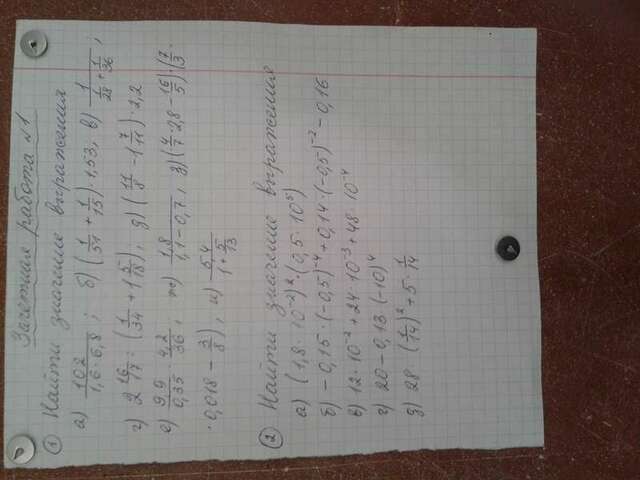 Зачетная работа №1
① Найти значение выражения
а) 102/(1,6·6,8); б) (1/51 + 1/15)·1,53; в) 1/(1/28 + 1/36);
г) 2 16/17 : (1/34 + 1 5/18), д) (11/8 - 1 7/11)·2,2
е) 9,9/0,35 · 4,2/36, ж) 1,8/(1,1-0,7), з) (4/7·2,8 - 16/5):(7/3·
·0,018 - 3/8), и) 5,4/(1 + 5/13)
② Найти значение выражения
а) (1,8·10⁻²)²·(0,5·10⁵)
б) -0,15·(-0,5)⁻⁴+0,14·(-0,5)⁻²-0,16
в) 12·10⁻²+24·10⁻³+48·10⁻⁴
г) 20-0,13·(-10)⁴
д) 28·(1/14)²+5·1/14